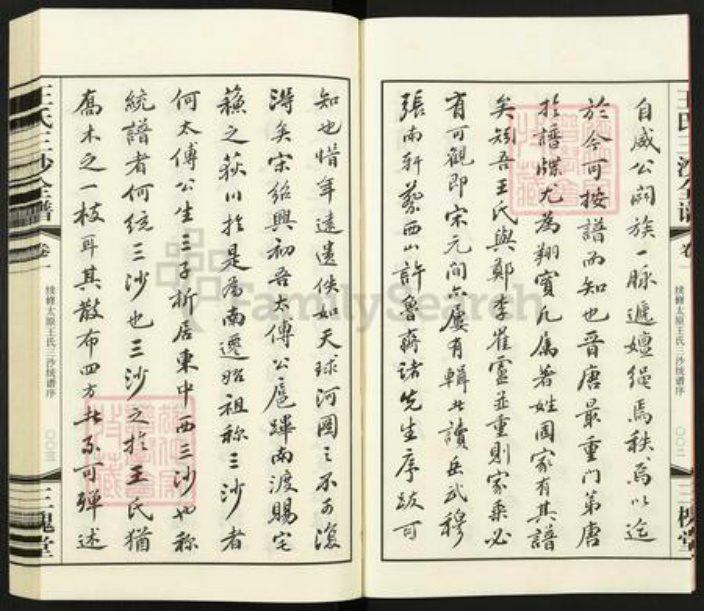 王氏三沙全譜
卷一
续修太原王氏三沙统谱序
〇〇二
三槐堂
自威公闢族一脉遞嬗繩焉秩焉以迄
於今可按譜而知也晉唐最重門第唐
於譜牒尤為翔實凡属著姓國家有其譜
矣矧吾王氏與鄭李崔盧並重則家乘必
有可觀即宋元間亦屢有輯者讀岳武穆
張南軒蔡西山許魯齋諸先生序跋可
知也惜年遠遺佚如天球河圖之不可復
得矣宋紹興初吾太傅公扈蹕南渡賜宅
蘇之荻川於是為南遷始祖称三沙者
何太傅公生三子析居東中西三沙也称
統譜者何統三沙也三沙之於王氏猶
喬木之一枝耳其散布四方者不可殫述
王氏三沙全譜
卷一
续修太原王氏三沙统谱序
〇〇三
三槐堂
FamilySearch